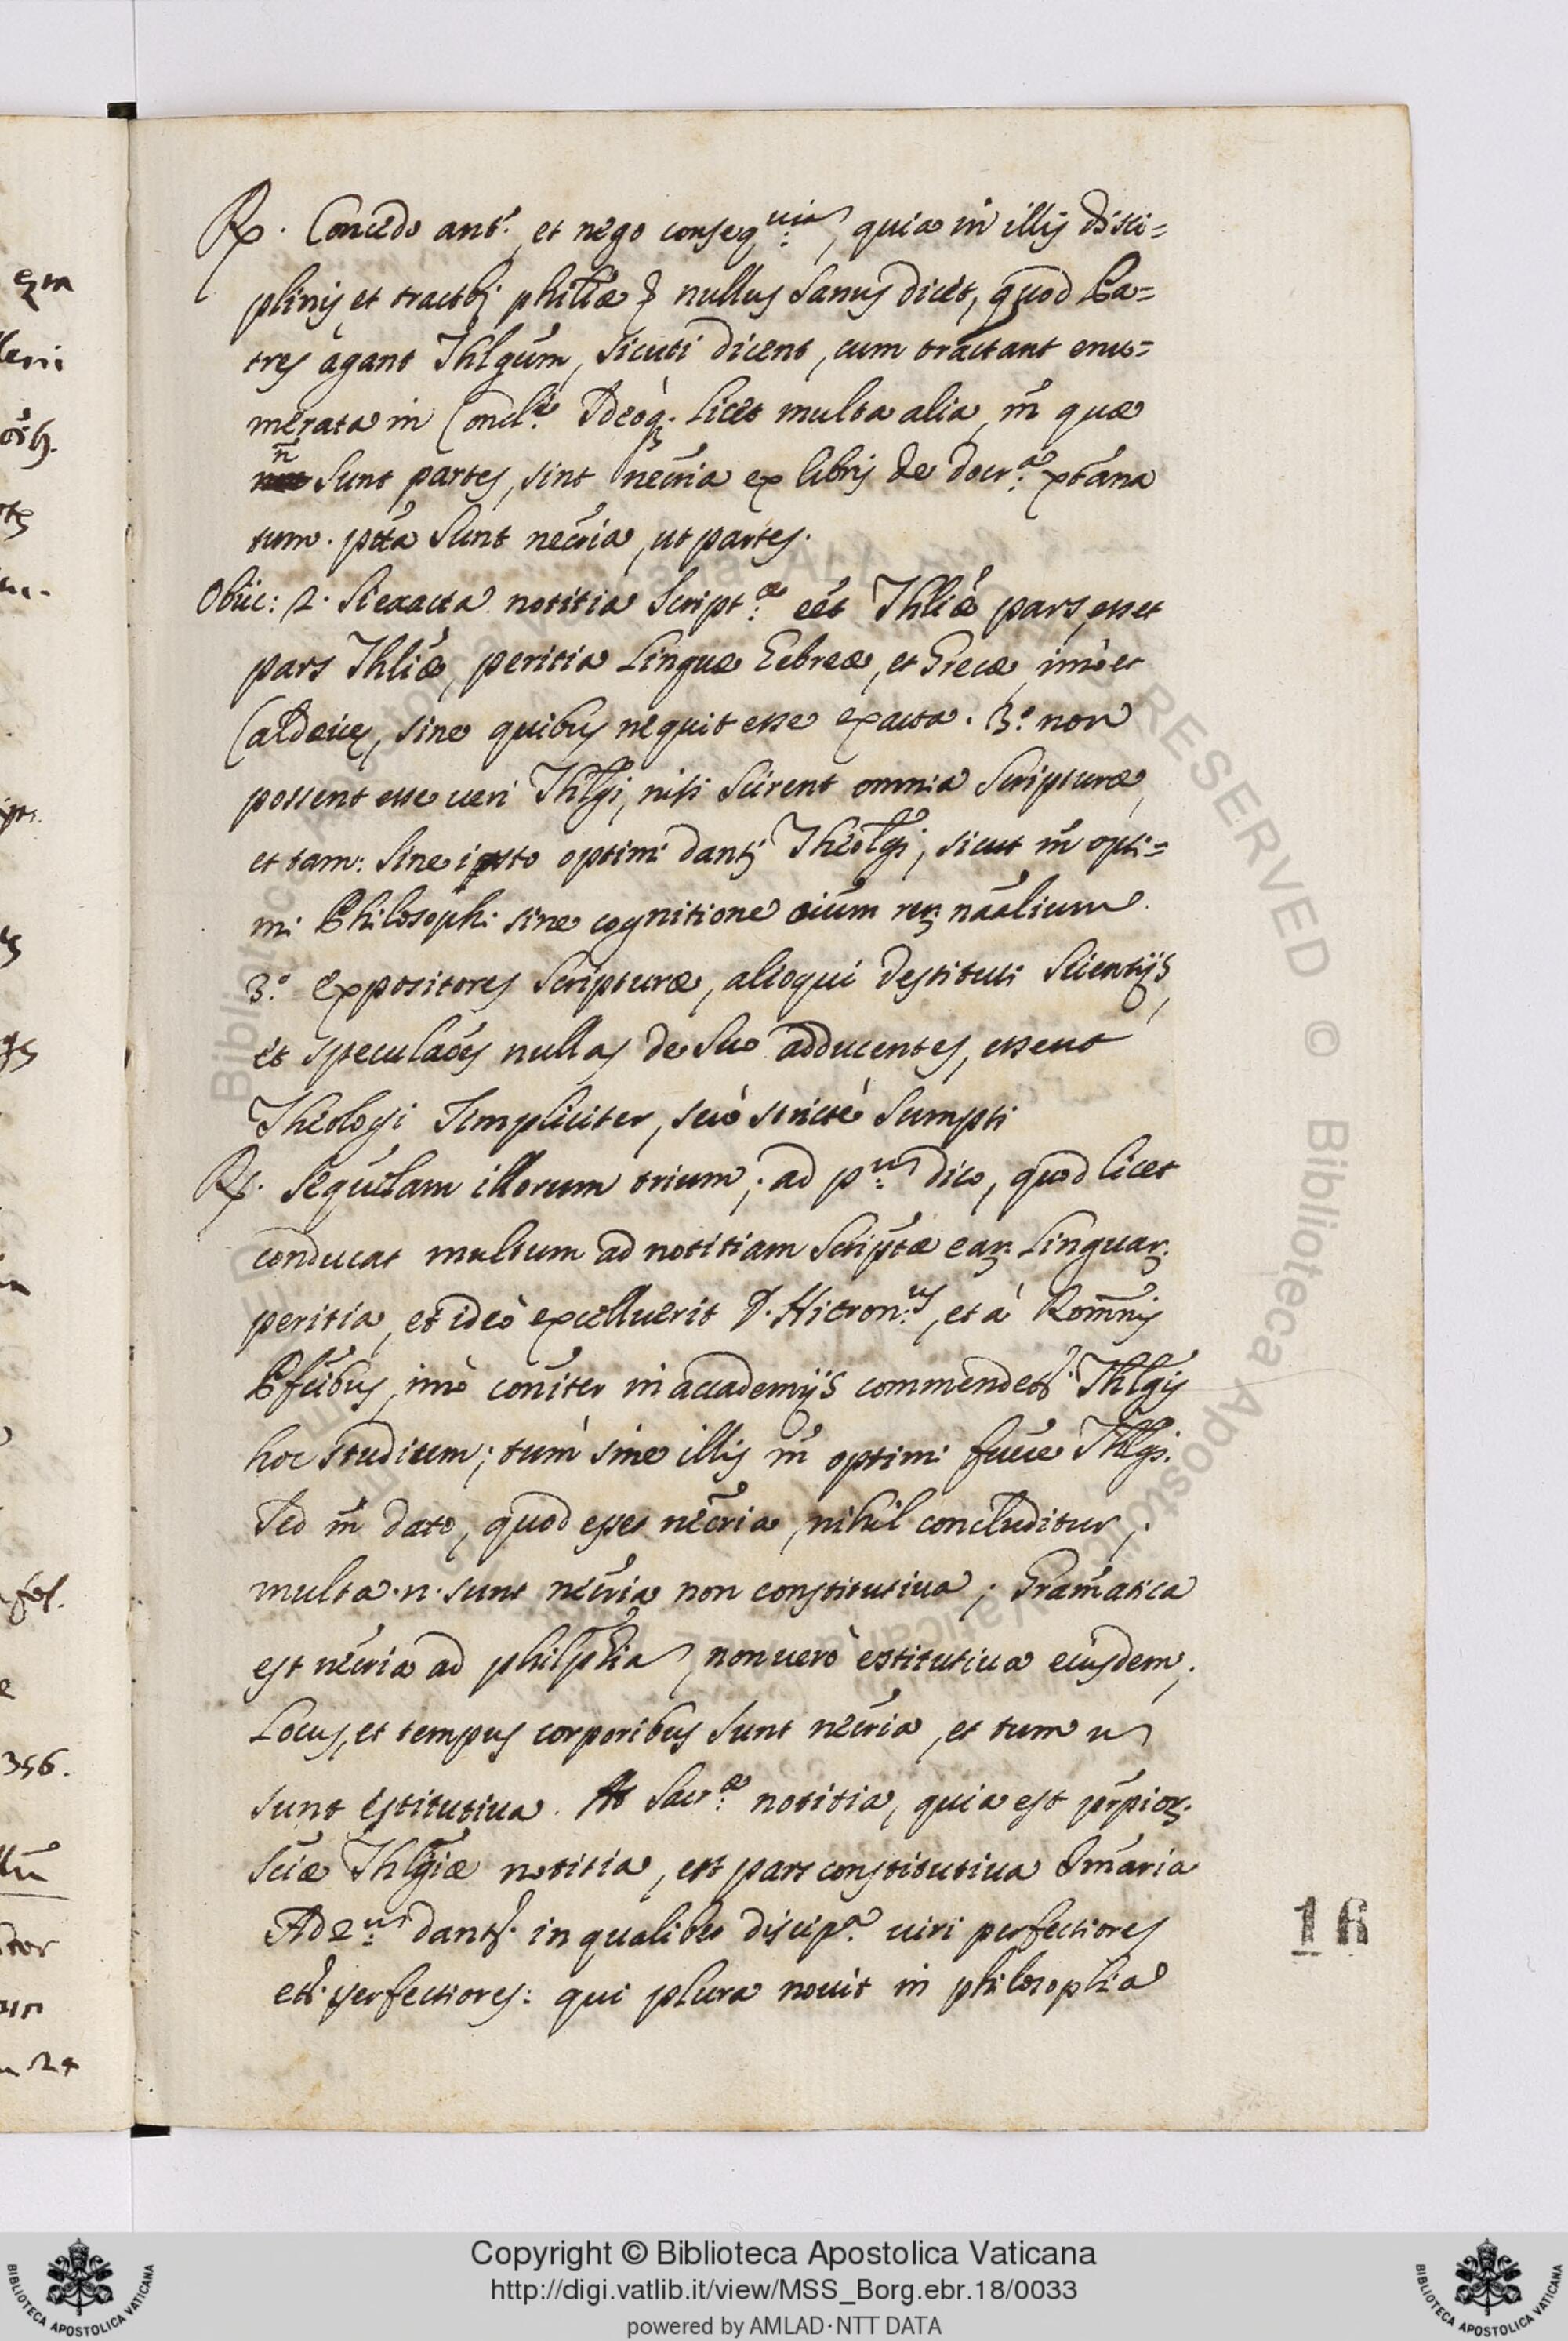 ℞. Concedo ant.̃ et nego conseq:uia, quia in illis disci=
plinis et tractb; philiæ & nullus sanus dicet, quod Pa=
tres agant Thlgũm, sicuti dicent, cum tractant enu=
merata in Concl:e Adeoq; licet multa alia, m̃ quæ
ñ sunt partes, sint necria ex libris de docr:a xtãna
tum. ptta sunt necria, ut partes.
Obiic: 2. Si exacta notitia Script:æ eet Thliæ pars, esset
pars Thliæ, peritia Linguæ Eebreæ, et Grecæ, imò et
Caldeicæ, sine quibus nequit esse exacta. 3.º non
possent esse ueri Thlgi, nisi scirent omnia Scripturæ,
et tam: sine isto optimi dantʳ Theolgi, sicut m̃ opti=
mi Philosophi sine cognitione oium reꝝ naãlium.
3.º Expositores Scripturæ, alioqui destituti scientijs,
et speculaões nullas de suo adducentes, essent
Theologi simpliciter, seu strictè sumpti
℞. sequelam illorum trium; ad p:um dico, quod licet
conducat multum ad notitiam Scriptæ eaꝝ Linguaꝝ
peritia, et ideò excelluerit D. Hieron:us, et à Romñis
Pfcibus, imò coniter in accademijs commendetʳ Thlgis
hoc studium; tum sine illis m̃ optimi fuere Thlgi.
Sed m̃ dato, quod esset necria, nihil concluditur;
multa .n. sunt necria non constitutiua; Gramatica
est necria ad philphia, non uerò cstitutiua eiusdem;
Locus, et tempus corporibus sunt necria, et tum ñ
sunt cstitutiua. At Sacr:æ notitia, quia est prpioꝝ
sciæ Thlgiæ notitia, est pars constitutiua
Ad 2:um dantʳ. in qualibet discip:a uiri perfectiores
etʳ perfectiores: qui plura nouit in philosophia
16
Copyright © Biblioteca Apostolica Vaticana
http://digi.vatlib.it/view/MSS_Borg.ebr.18/0033
powered by AMLAD·NTT DATA